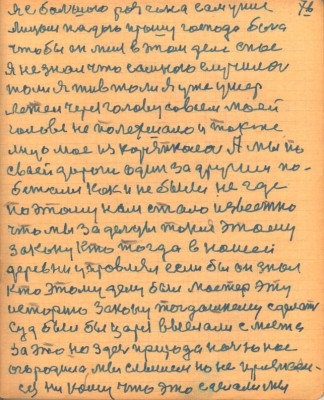 76
я не большого роя село самучие
лицом падаю прошу господа бога
чтобы он мне в этом деле спас
Я не знал что самного случилос
то ли я жив то ли я уже умер
летел через голову совсем моей
голове не полегчало и также
лицо мое из коряпкося А мы по
своей дороги один за другим по-
бежали как и не были не где
поэтому нам стало известно
что мы заделцы токия этому
закону кто тогда в нашей
деревни управлял если бы он знал
кто этому делу был мастер эту
историю Закону тогдашнему сделат
суд был бы царя выслали с места
за это но здес природа ночь нас
огородила, мы слышем но не призкаи-
ся ни кому что это сделали мы